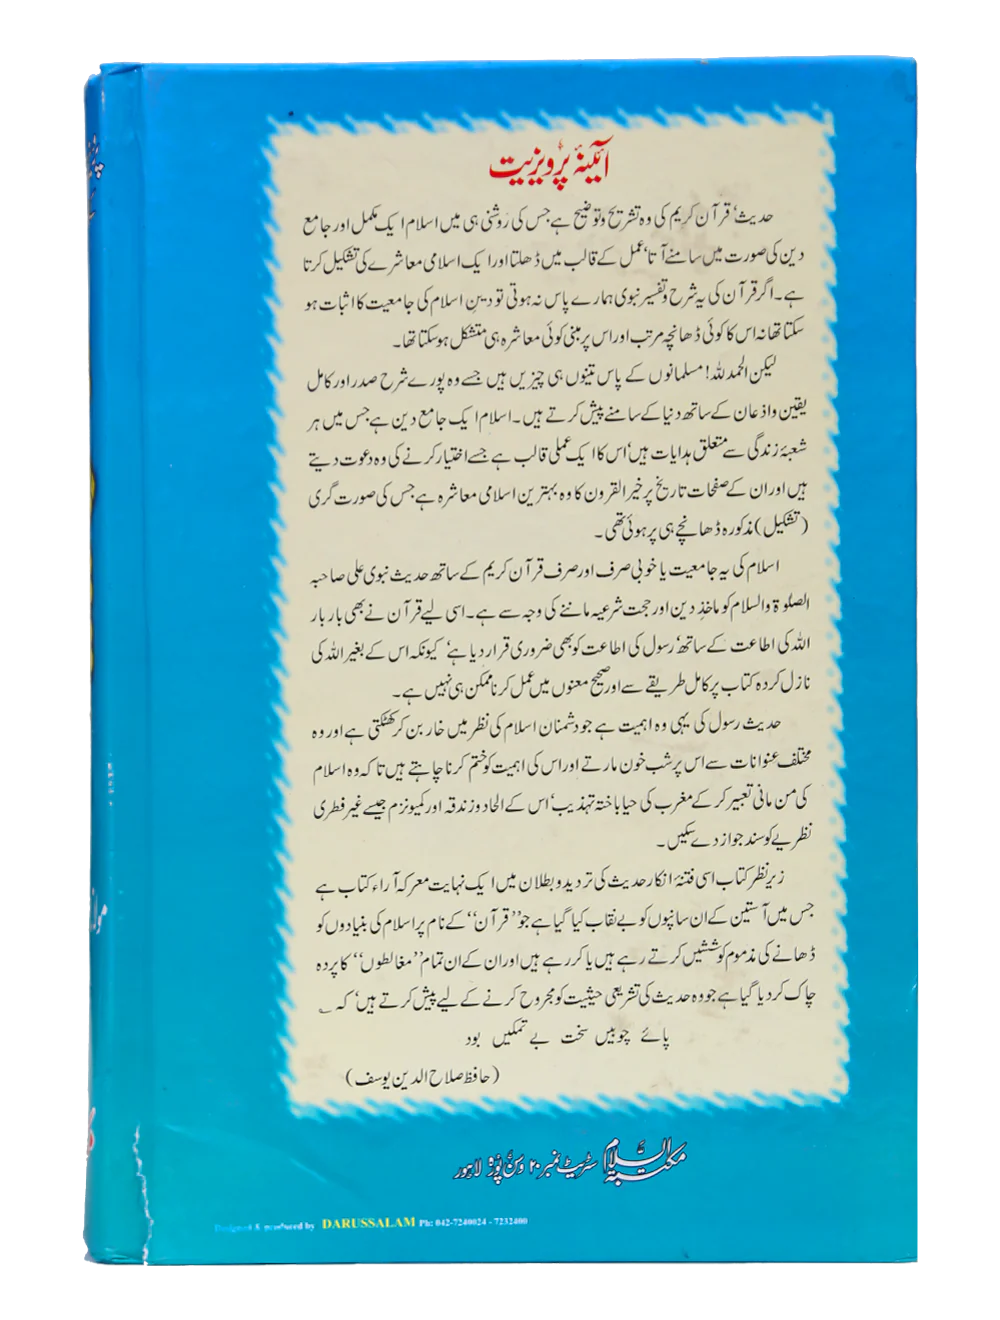 آئینۂ پرویزیت
حدیث، قرآن کریم کی وہ تشریح وتوضیح ہے جس کی روشنی ہی میں اسلام ایک مکمل اور جامع
دین کی صورت میں سامنے آتا، عمل کے قالب میں ڈھلتا اور ایک اسلامی معاشرے کی تشکیل کرتا
ہے۔ اگر قرآن کی یہ شرح وتفسیر نبوی ہمارے پاس نہ ہوتی تو دین اسلام کی جامعیت کا اثبات ہو
سکتا تھا نہ اس کا کوئی ڈھانچہ مرتب اور اس پر مبنی کوئی معاشرہ ہی متشکل ہو سکتا تھا۔
لیکن الحمدللہ! مسلمانوں کے پاس تینوں ہی چیزیں ہیں جسے وہ پورے شرح صدر اور کامل
یقین واذعان کے ساتھ دنیا کے سامنے پیش کرتے ہیں۔ اسلام ایک جامع دین ہے جس میں ہر
شعبۂ زندگی سے متعلق ہدایات ہیں، اس کا ایک عملی قالب ہے جسے اختیار کرنے کی وہ دعوت دیتے
ہیں اور ان کے صفحات تاریخ پر خیر القرون کا وہ بہترین اسلامی معاشرہ ہے جس کی صورت گری
(تشکیل) مذکورہ ڈھانچے ہی پر ہوئی تھی۔
اسلام کی یہ جامعیت یا خوبی صرف اور صرف قرآن کریم کے ساتھ حدیث نبوی علی صاحبہ
الصلوٰۃ والسلام کو ماخذِ دین اور حجت شرعیہ ماننے کی وجہ سے ہے۔ اسی لیے قرآن نے بھی بار بار
اللہ کی اطاعت کے ساتھ، رسول کی اطاعت کو بھی ضروری قرار دیا ہے، کیونکہ اس کے بغیر اللہ کی
نازل کردہ کتاب پر کامل طریقے سے اور صحیح معنوں میں عمل کرنا ممکن ہی نہیں ہے۔
حدیث رسول کی یہی وہ اہمیت ہے جو دشمنان اسلام کی نظر میں خار بن کر کھٹکتی ہے اور وہ
مختلف عنوانات سے اس پر شب خون مارتے اور اس کی اہمیت کو ختم کرنا چاہتے ہیں تاکہ وہ اسلام
کی من مانی تعبیر کر کے مغرب کی حیا باختہ تہذیب، اس کے الحاد وزندقہ اور کمیونزم جیسے غیر فطری
نظریے کو سند جواز دے سکیں۔
زیر نظر کتاب اسی فتنۂ انکار حدیث کی تردید و بطلان میں ایک نہایت معرکہ آراء کتاب ہے
جس میں آستین کے ان سانپوں کو بے نقاب کیا گیا ہے جو ’’قرآن‘‘ کے نام پر اسلام کی بنیادوں کو
ڈھانے کی مذموم کوششیں کرتے رہے ہیں یا کر رہے ہیں اور ان کے ان تمام ’’مغالطوں‘‘ کا پردہ
چاک کر دیا گیا ہے جو وہ حدیث کی تشریعی حیثیت کو مجروح کرنے کے لیے پیش کرتے ہیں، کہ ؂
پائے چوبیں سخت بے تمکیں بود
(حافظ صلاح الدین یوسف)
مکتبۃ السلام سٹریٹ نمبر ۲۰ وسن پورہ لاہور
Designed & produced by DARUSSALAM Ph: 042-7240024 - 7232400